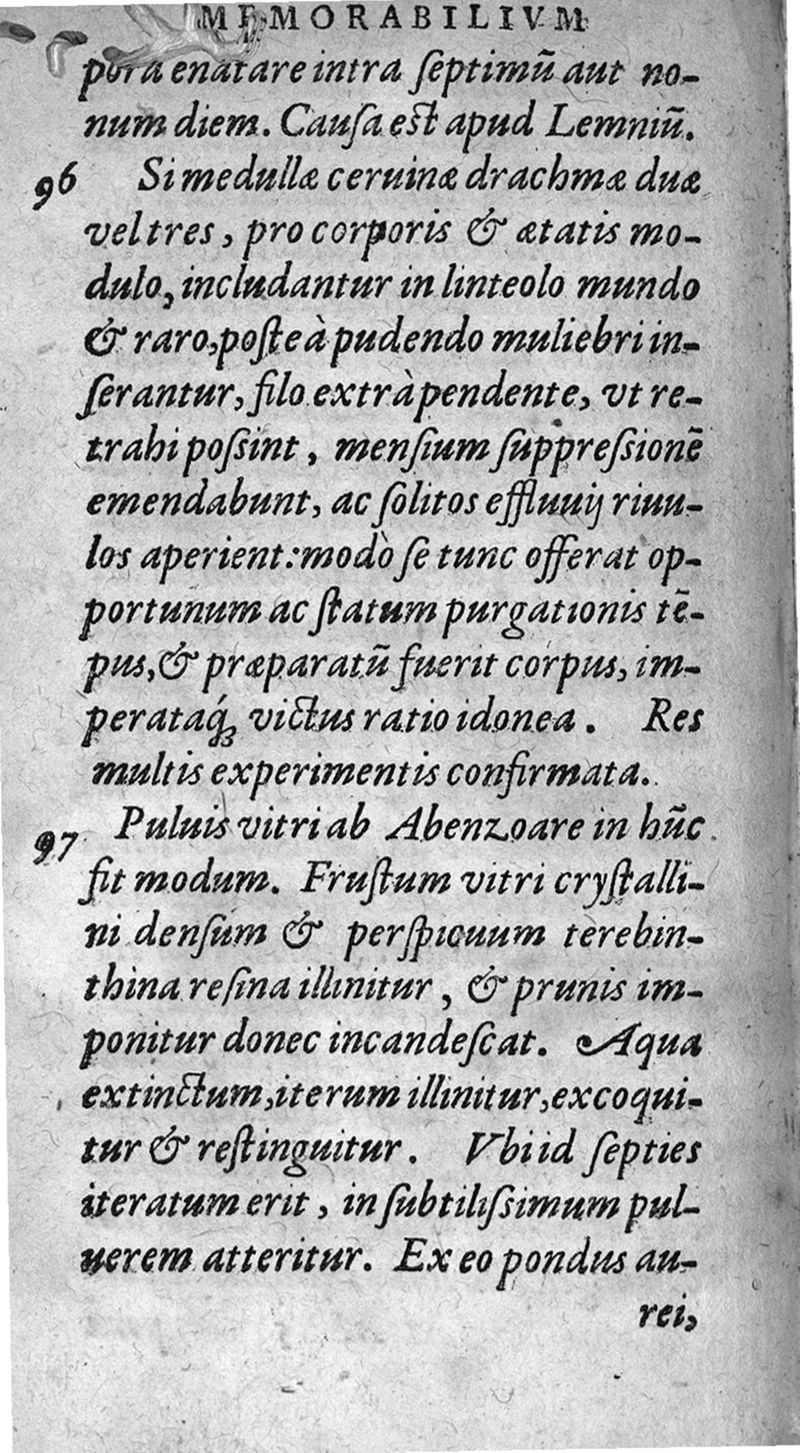 MEMORABILIVM
pora enatare intra ſeptimū aut no-
num diem. Cauſa eſt apud Lemniū.
96 Si medullæ ceruinæ drachmæ duæ
vel tres, pro corporis & ætatis mo-
dulo, includantur in linteolo mundo
& raro, poſteà pudendo muliebri in-
ſerantur, filo extrà pendente, vt re-
trahi poſsint, menſium ſuppreſsionē
emendabunt, ac ſolitos effluuij riuu-
los aperient: modò ſe tunc offerat op-
portunum ac ſtatum purgationis tē-
pus, & præparatū fuerit corpus, im-
perataq́; victus ratio idonea. Res
multis experimentis confirmata.
97 Puluis vitri ab Abenzoare in hūc
fit modum. Fruſtum vitri cryſtalli-
ni denſum & perſpicuum terebin-
thina reſina illinitur, & prunis im-
ponitur donec incandeſcat. Aqua
extinctum, iterum illinitur, excoqui-
tur & reſtinguitur. Vbi id ſepties
iteratum erit, in ſubtiliſsimum pul-
uerem atteritur. Ex eo pondus au-
rei,